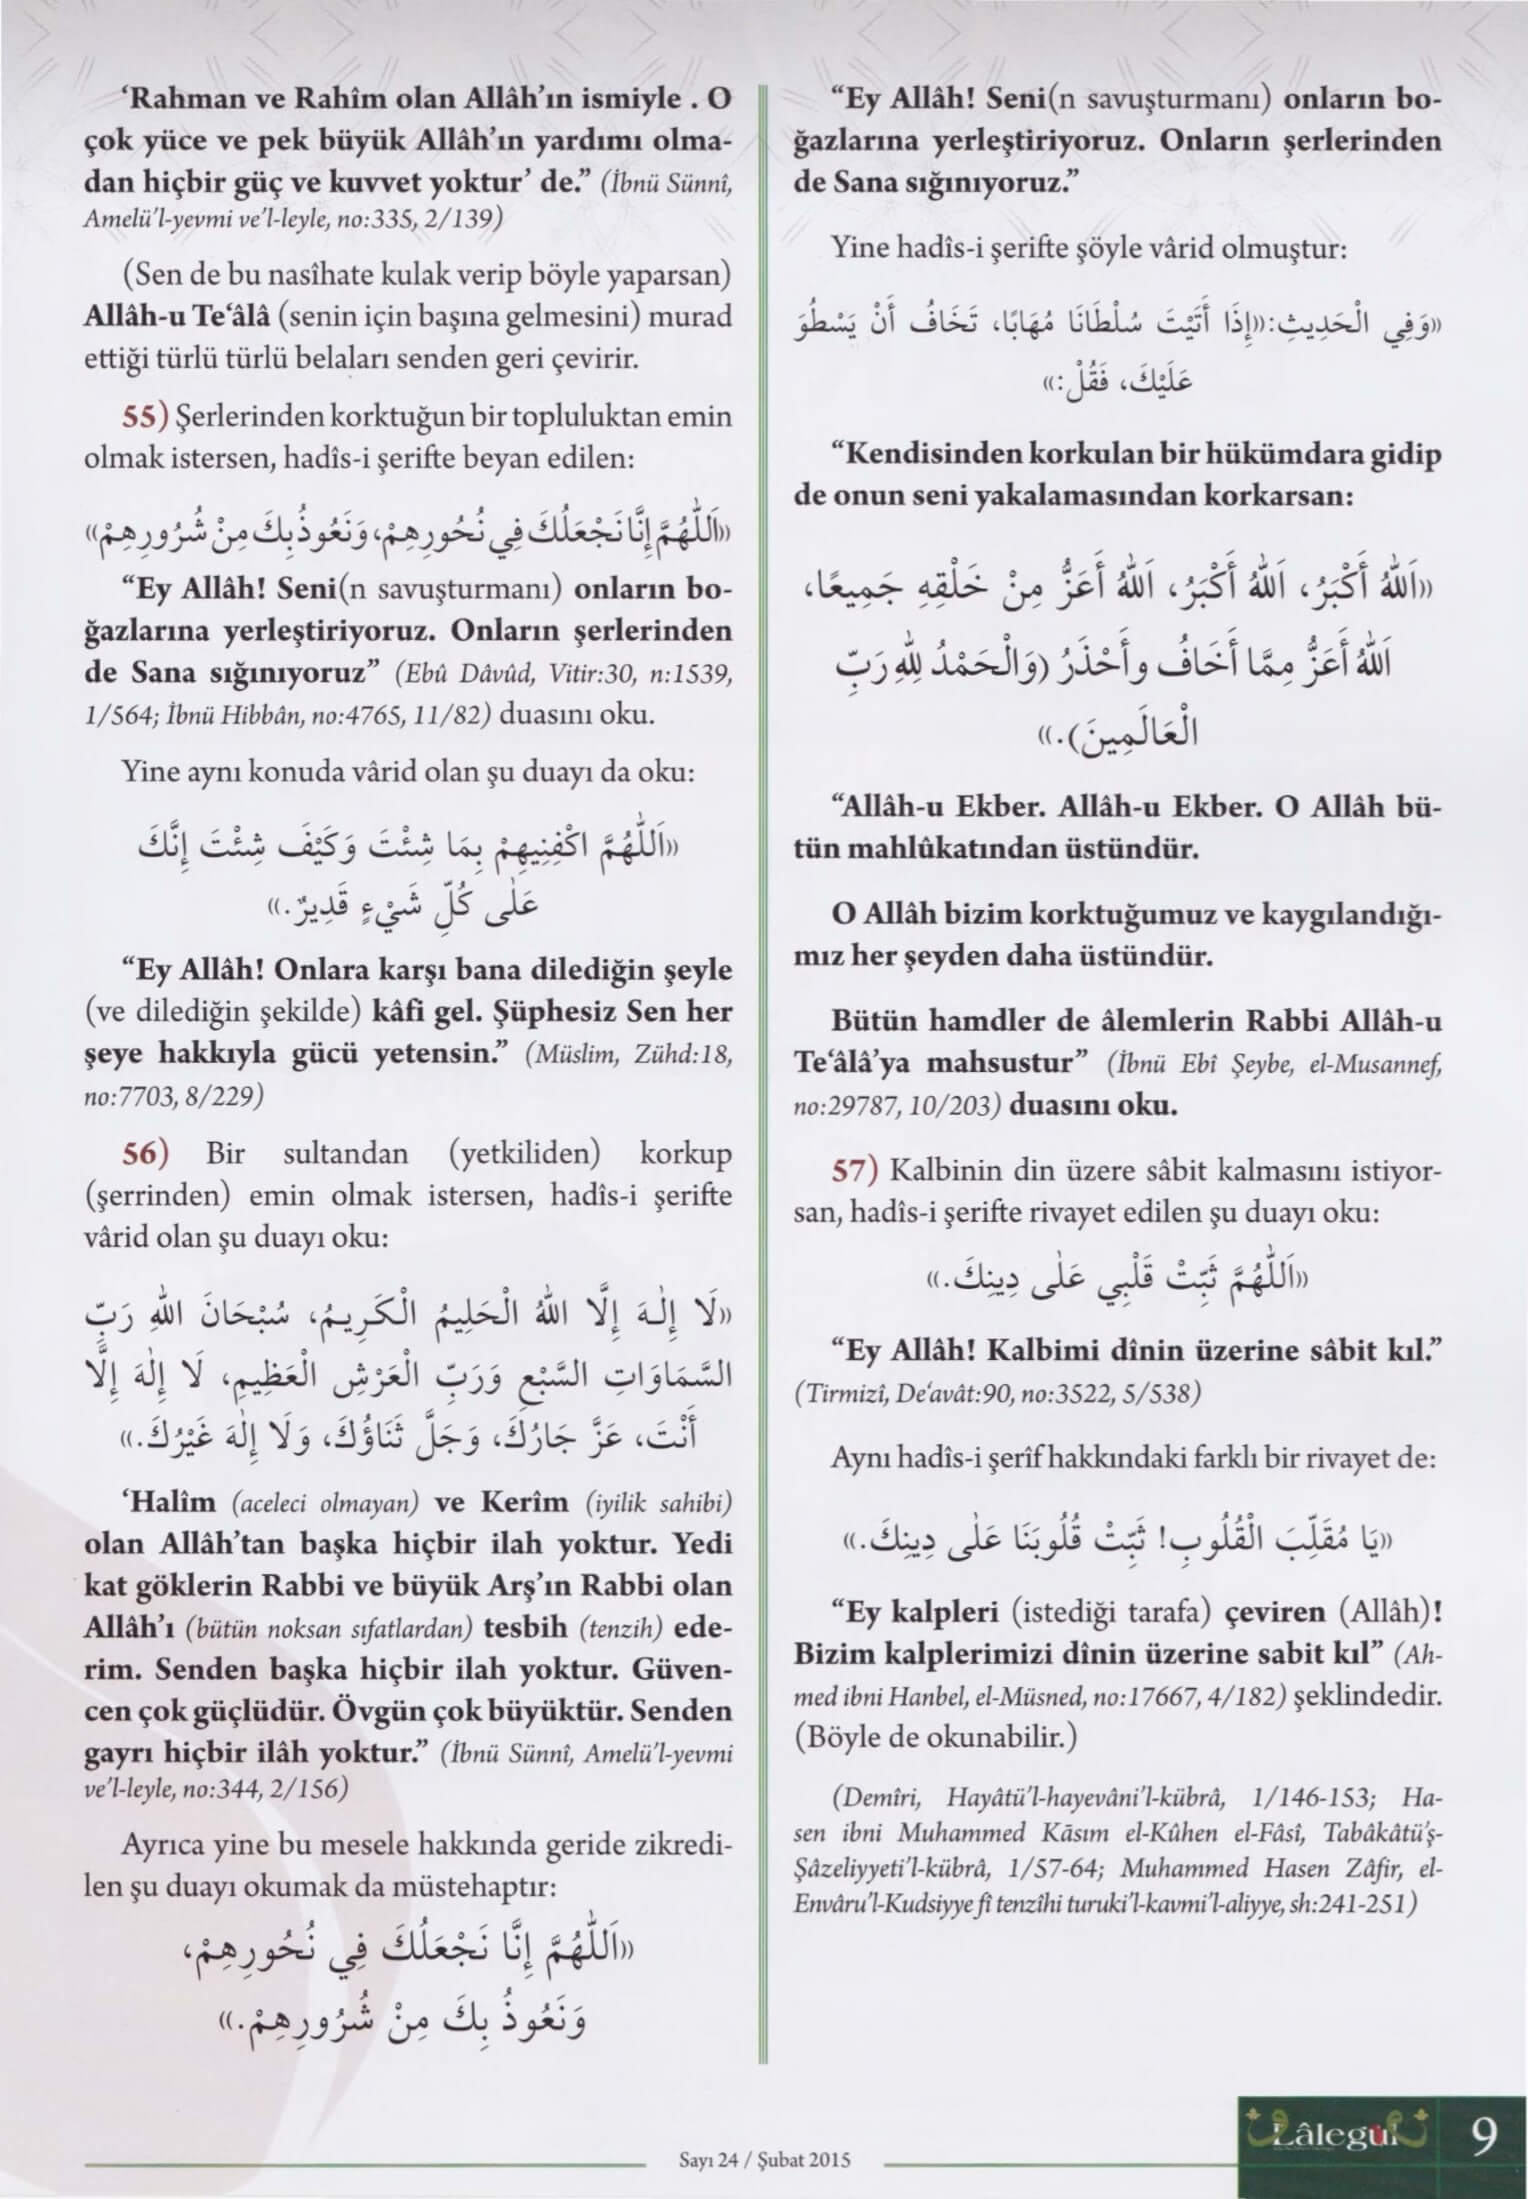 ‘Rahman ve Rahîm olan Allâh’ın ismiyle . O
çok yüce ve pek büyük Allâh’ın yardımı olma-
dan hiçbir güç ve kuvvet yoktur’ de.” (İbnü Sünnî,
Amelü’l-yevmi ve’l-leyle, no:335, 2/139)
(Sen de bu nasîhate kulak verip böyle yaparsan)
Allâh-u Te‘âlâ (senin için başına gelmesini) murad
ettiği türlü türlü belaları senden geri çevirir.
55) Şerlerinden korktuğun bir topluluktan emin
olmak istersen, hadîs-i şerifte beyan edilen:
«اَللّٰهُمَّ إِنَّا نَجْعَلُكَ فِي نُحُورِهِمْ، وَنَعُوذُ بِكَ مِنْ شُرُورِهِمْ»
“Ey Allâh! Seni(n savuşturmanı) onların bo-
ğazlarına yerleştiriyoruz. Onların şerlerinden
de Sana sığınıyoruz” (Ebû Dâvûd, Vitir:30, n:1539,
1/564; İbnü Hibbân, no:4765, 11/82) duasını oku.
Yine aynı konuda vârid olan şu duayı da oku:
«اَللّٰهُمَّ اكْفِنِيهِمْ بِمَا شِئْتَ وَكَيْفَ شِئْتَ إِنَّكَ
عَلٰى كُلِّ شَيْءٍ قَدِيرٌ.»
“Ey Allâh! Onlara karşı bana dilediğin şeyle
(ve dilediğin şekilde) kâfi gel. Şüphesiz Sen her
şeye hakkıyla gücü yetensin.” (Müslim, Zühd:18,
no:7703, 8/229)
56) Bir sultandan (yetkiliden) korkup
(şerrinden) emin olmak istersen, hadîs-i şerifte
vârid olan şu duayı oku:
«لَا إِلٰهَ إِلَّا اللهُ الْحَلِيمُ الْكَرِيمُ، سُبْحَانَ اللهِ رَبِّ
السَّمَاوَاتِ السَّبْعِ وَرَبِّ الْعَرْشِ الْعَظِيمِ، لَا إِلٰهَ إِلَّا
أَنْتَ، عَزَّ جَارُكَ، وَجَلَّ ثَنَاؤُكَ، وَلَا إِلٰهَ غَيْرُكَ.»
‘Halîm (aceleci olmayan) ve Kerîm (iyilik sahibi)
olan Allâh’tan başka hiçbir ilah yoktur. Yedi
kat göklerin Rabbi ve büyük Arş’ın Rabbi olan
Allâh’ı (bütün noksan sıfatlardan) tesbih (tenzih) ede-
rim. Senden başka hiçbir ilah yoktur. Güven-
cen çok güçlüdür. Övgün çok büyüktür. Senden
gayrı hiçbir ilâh yoktur.” (İbnü Sünnî, Amelü’l-yevmi
ve’l-leyle, no:344, 2/156)
Ayrıca yine bu mesele hakkında geride zikredi-
len şu duayı okumak da müstehaptır:
«اَللّٰهُمَّ إِنَّا نَجْعَلُكَ فِي نُحُورِهِمْ،
وَنَعُوذُ بِكَ مِنْ شُرُورِهِمْ.»
“Ey Allâh! Seni(n savuşturmanı) onların bo-
ğazlarına yerleştiriyoruz. Onların şerlerinden
de Sana sığınıyoruz.”
Yine hadîs-i şerifte şöyle vârid olmuştur:
«وَفِي الْحَدِيثِ: «إِذَا أَتَيْتَ سُلْطَانًا مُهَابًا، تَخَافُ أَنْ يَسْطُوَ
عَلَيْكَ، فَقُلْ:»
“Kendisinden korkulan bir hükümdara gidip
de onun seni yakalamasından korkarsan:
«اَللهُ أَكْبَرُ، اَللهُ أَكْبَرُ، اَللهُ أَعَزُّ مِنْ خَلْقِهِ جَمِيعًا،
اَللهُ أَعَزُّ مِمَّا أَخَافُ وأَحْذَرُ (وَالْحَمْدُ لِلهِ رَبِّ
الْعَالَمِينَ).»
“Allâh-u Ekber. Allâh-u Ekber. O Allâh bü-
tün mahlûkatından üstündür.
O Allâh bizim korktuğumuz ve kaygılandığı-
mız her şeyden daha üstündür.
Bütün hamdler de âlemlerin Rabbi Allâh-u
Te‘âlâ’ya mahsustur” (İbnü Ebî Şeybe, el-Musannef,
no:29787, 10/203) duasını oku.
57) Kalbinin din üzere sâbit kalmasını istiyor-
san, hadîs-i şerifte rivayet edilen şu duayı oku:
«اَللّٰهُمَّ ثَبِّتْ قَلْبِي عَلٰى دِينِكَ.»
“Ey Allâh! Kalbimi dînin üzerine sâbit kıl.”
(Tirmizî, De‘avât:90, no:3522, 5/538)
Aynı hadîs-i şerîf hakkındaki farklı bir rivayet de:
«يَا مُقَلِّبَ الْقُلُوبِ! ثَبِّتْ قُلُوبَنَا عَلٰى دِينِكَ.»
“Ey kalpleri (istediği tarafa) çeviren (Allâh)!
Bizim kalplerimizi dînin üzerine sabit kıl” (Ah-
med ibni Hanbel, el-Müsned, no:17667, 4/182) şeklindedir.
(Böyle de okunabilir.)
(Demîri, Hayâtü’l-hayevâni’l-kübrâ, 1/146-153; Ha-
sen ibni Muhammed Kāsım el-Kûhen el-Fâsî, Tabâkâtü’ş-
Şâzeliyyeti’l-kübrâ, 1/57-64; Muhammed Hasen Zâfir, el-
Envâru’l-Kudsiyye fî tenzîhi turuki’l-kavmi’l-aliyye, sh:241-251)
Sayı 24 / Şubat 2015
Lâlegül
9